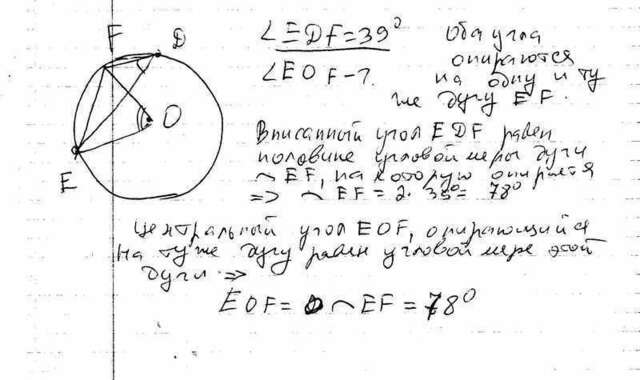 F D
O
E
∠EDF = 39°
∠EOF - ?
Оба угла
опираются
на одну и ту
же дугу EF.
Вписанный угол EDF равен
половине угловой меры дуги
⌒EF, на которую опирается
=> ⌒EF = 2 · 39° = 78°
Центральный угол EOF, опирающийся
на ту же дугу равен угловой мере этой
дуги =>
EOF = ⌒EF = 78°